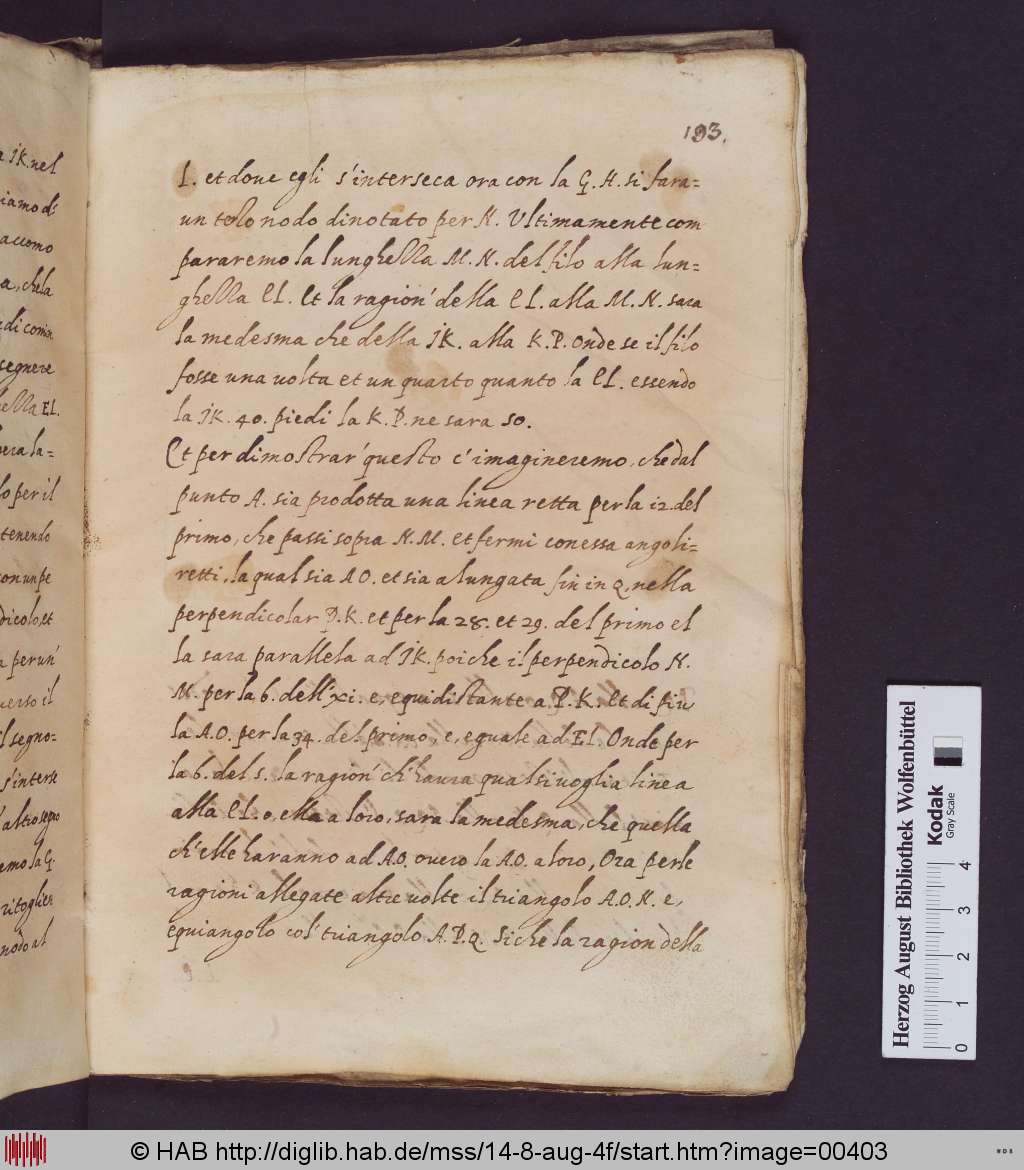 a jk. nel
iamo di
accomo
a, che la
segnere
della EL.
pera la=
lo per il
tenendo
con un pe
dicolo, et
a per un'
verso il
l segno=
s'interse
altro segno
emo la G.
ritoglier
nodo al
193.
L. et doue egli s'interseca ora con la G. H. si fara=
un terzo nodo dinotato per N. Ultimamente com
pararemo la lunghella M. N. del filo alla lun=
ghella EL. Et la ragion' della EL. alla M. N. sara
la medesma che della jK. alla K. P. onde se il filo
fosse una uolta et un quarto quanto la EL. essendo
la jK. 40. piedi la K. P. ne sara 50.
Et per dimostrar' questo c'imagineremo, che dal
punto A. sia prodotta una linea retta per la 12. del
primo, che passi sopra N. M. et fermi con essa angoli=
retti, la qual sia AO. et sia alungata fin in Q, nella
perpendicolar P. K. et per la 28. et 29. del primo el
la sara parallela ad jK. poiche il perpendicolo N.
M. per la 6. dell' xi. e, equidistante a P. K. Et di piu
la A.O. per la 34. del primo, e, eguale ad EL. Onde per
la 6. del 5. la ragion' ch'haura qual si uoglia linea
alla EL. o, ella a loro, sara la medesma, che quella
ch'elle haranno ad A.O. ouero la A.O. a loro, Ora per le
ragioni allegate altre uolte il triangolo A.O.N. e,
equiangolo col' triangolo A.P.Q. Si che la ragion della
Herzog August Bibliothek Wolfenbüttel
Kodak
Gray Scale
0 1 2 3 4
© HAB http://diglib.hab.de/mss/14-8-aug-4f/start.htm?image=00403